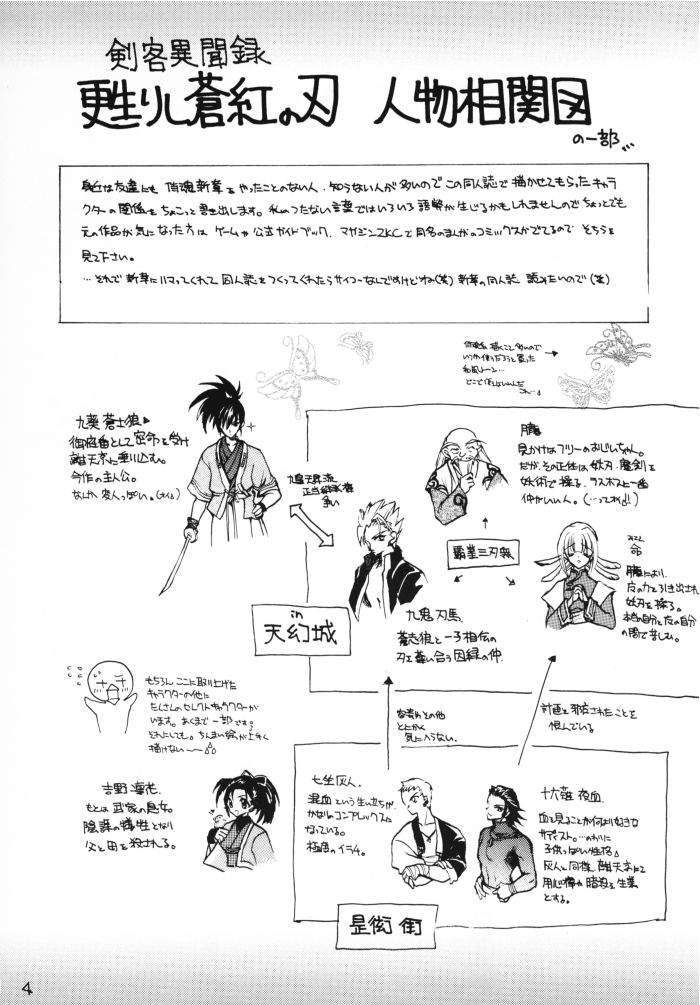 剣客異聞録
甦りし蒼紅の刃 人物相関図
の一部…
身近な友達にも 侍魂新章をやったことのない人、知らない人が多いのでこの同人誌で描かせてもらったキャラ
クターの関係をちょこっと書き出します。私のつたない言葉ではいろいろ誤解が生じるかもしれませんのでちょっとでも
元の作品が気になった方は ゲームや公式ガイドブック、マガジンZKCで同名のまんがのコミックスがでてるので そちらを
見て下さい。
…それで新章にハマってくれて 同人誌をつくってくれたらサイコーなんですけどね(笑) 新章の同人誌 読みたいので(笑)
九葵 蒼志狼
御庭番として密命を受け
離天京に乗り込む。
今作の主人公。
九鬼 刃馬
蒼志狼と一子相伝の
刃を奪い合う因縁の仲。
朧
見かけはフリーのおじいちゃん。
だが、その正体は妖刃、魔剣を
妖術で操る、ラスボスと一番
仲がいい人。
覇業三刃衆
みこと
命
朧により、
刃を操る。
本当の自分と
の間で苦しむ。
in
天幻城
もちろん ここに取り上げた
キャラクターの他に
たくさんのセレクトキャラクターが
います。あくまで一部です。
描けない〜
とにかく
気に入らない。
計画を邪魔されたことを
恨んでいる
吉野 凛花
もとは武家の息女。
陰謀の犠牲となり
父と母を殺される。
七坐 灰人
混血という生い立ちが
かなりのコンプレックスに
なっている。
極度のイラチ。
十六夜 夜血
血を見ることが何より好きな
サディスト。
子供っぽい性格
灰人と同様 離天京にて
用心棒や暗殺を生業
とする。
是衒街
4